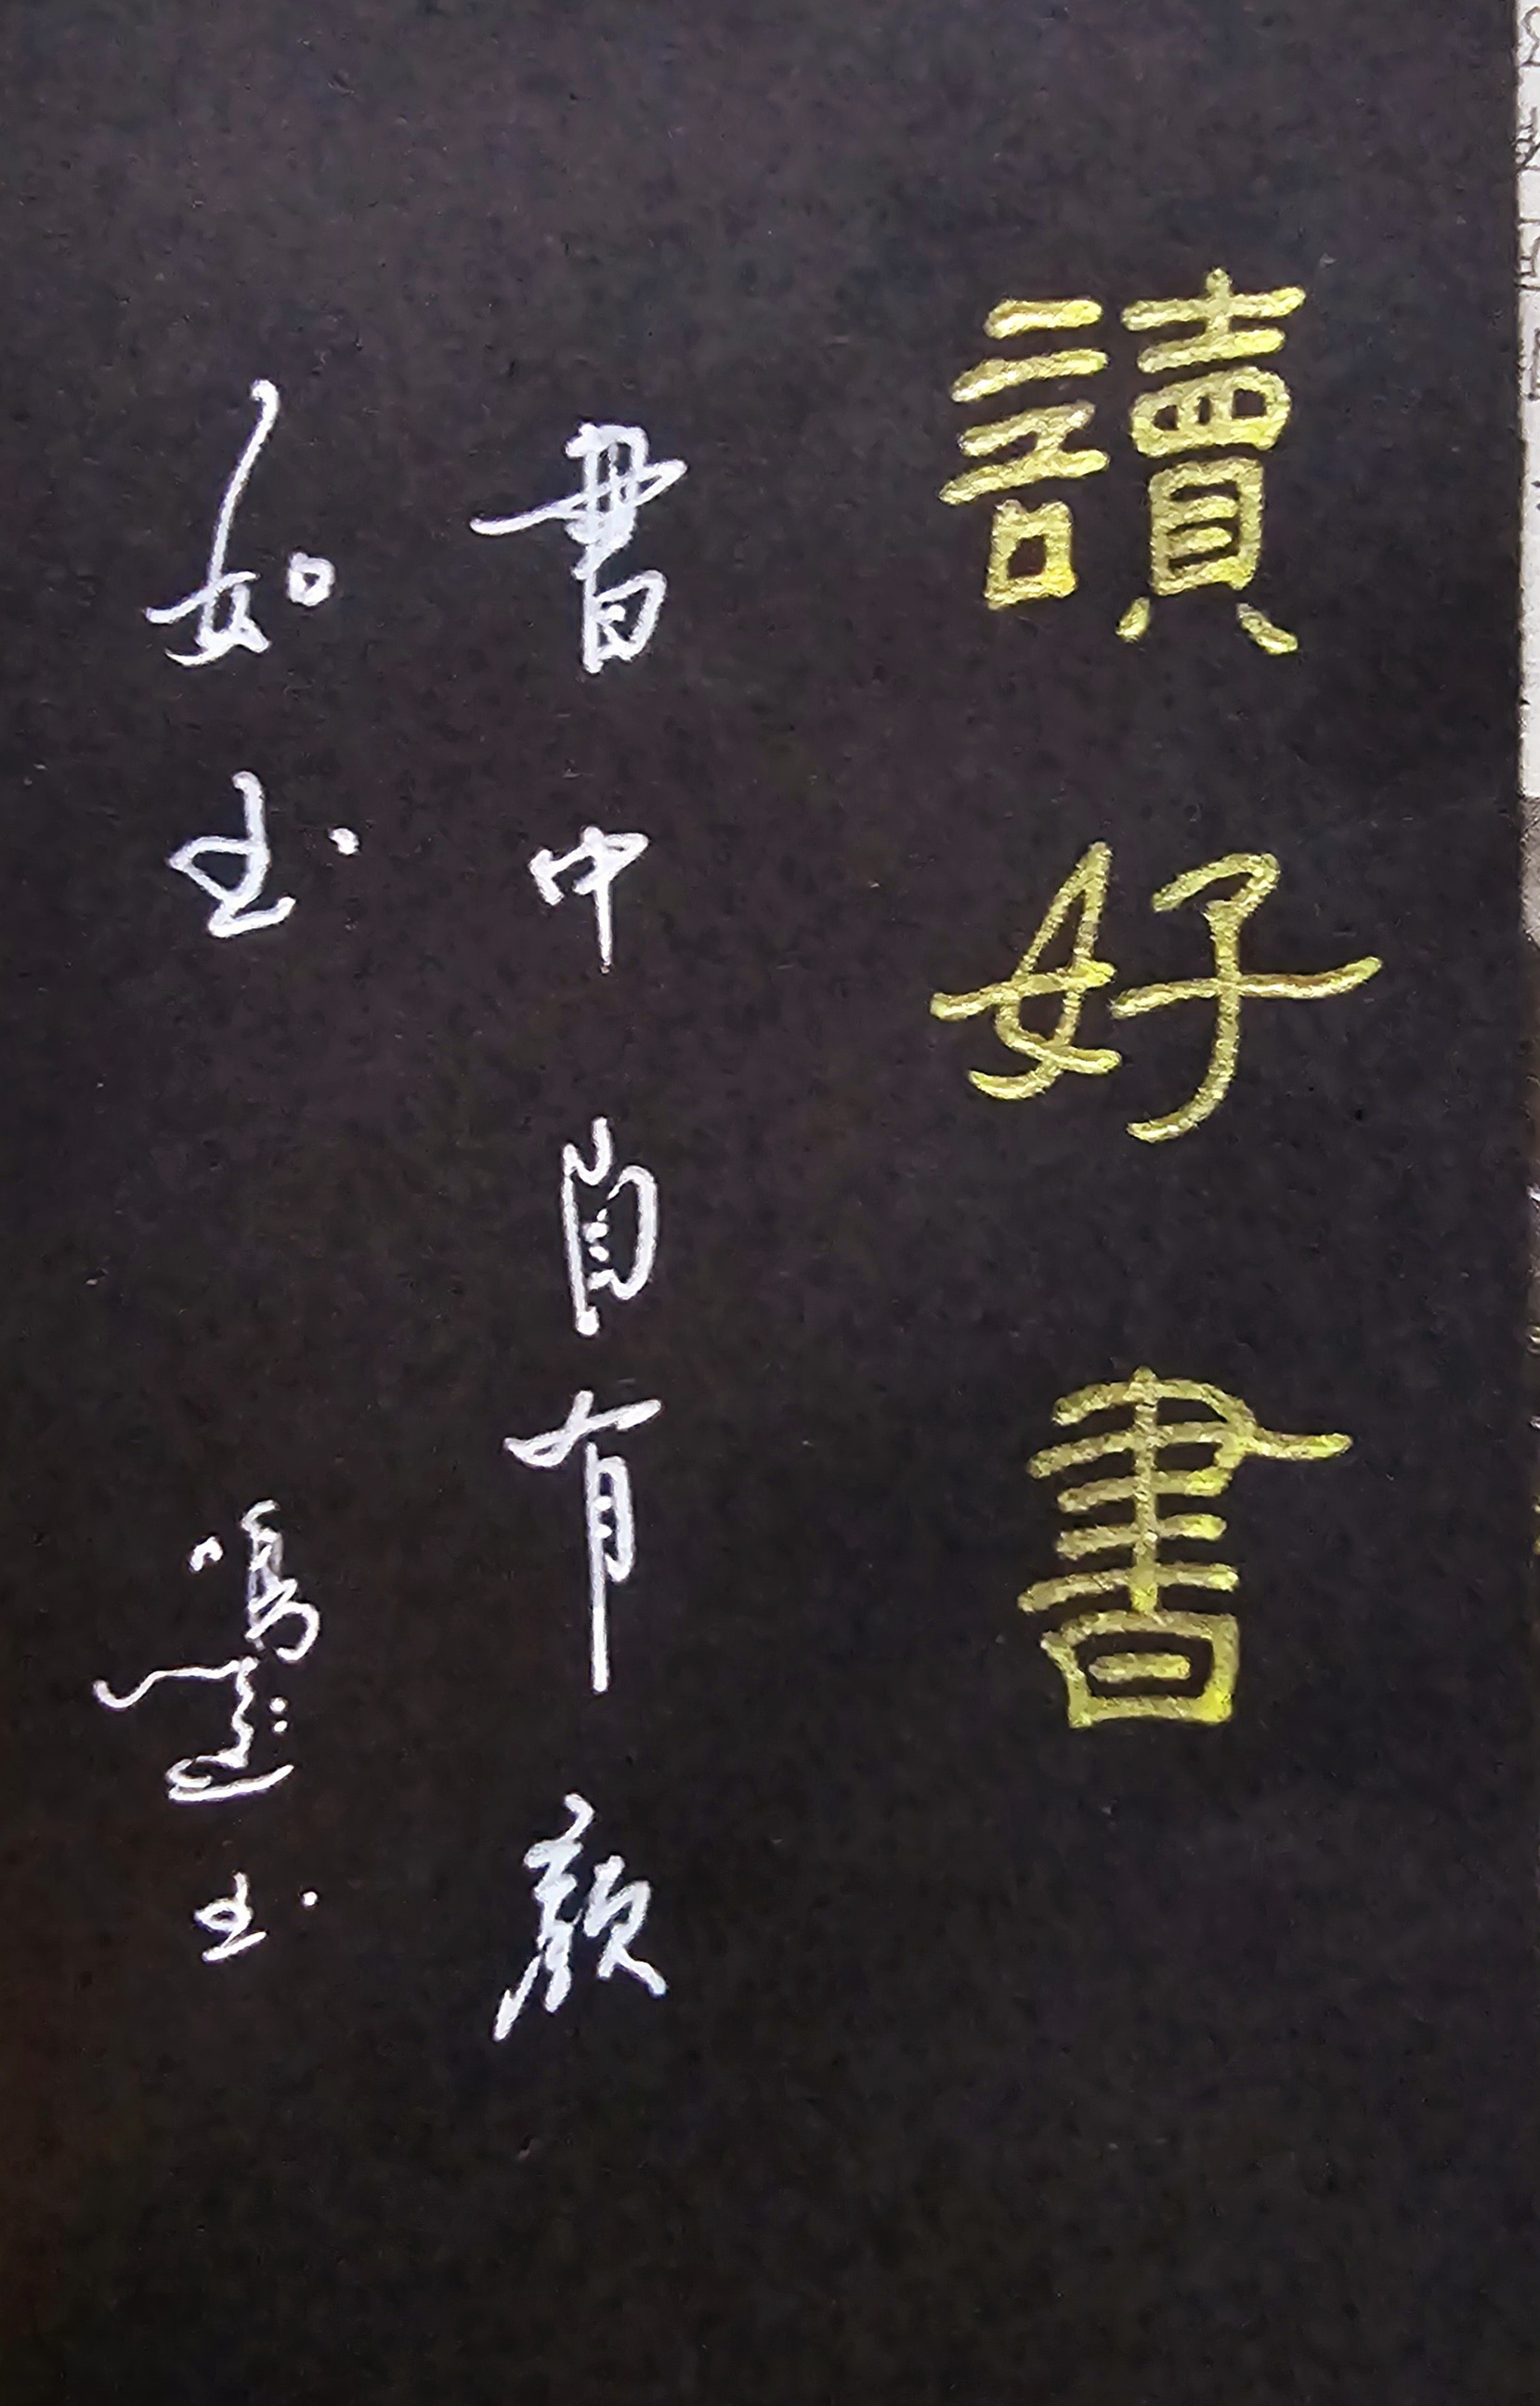 讀好書
書中自有顏
如玉